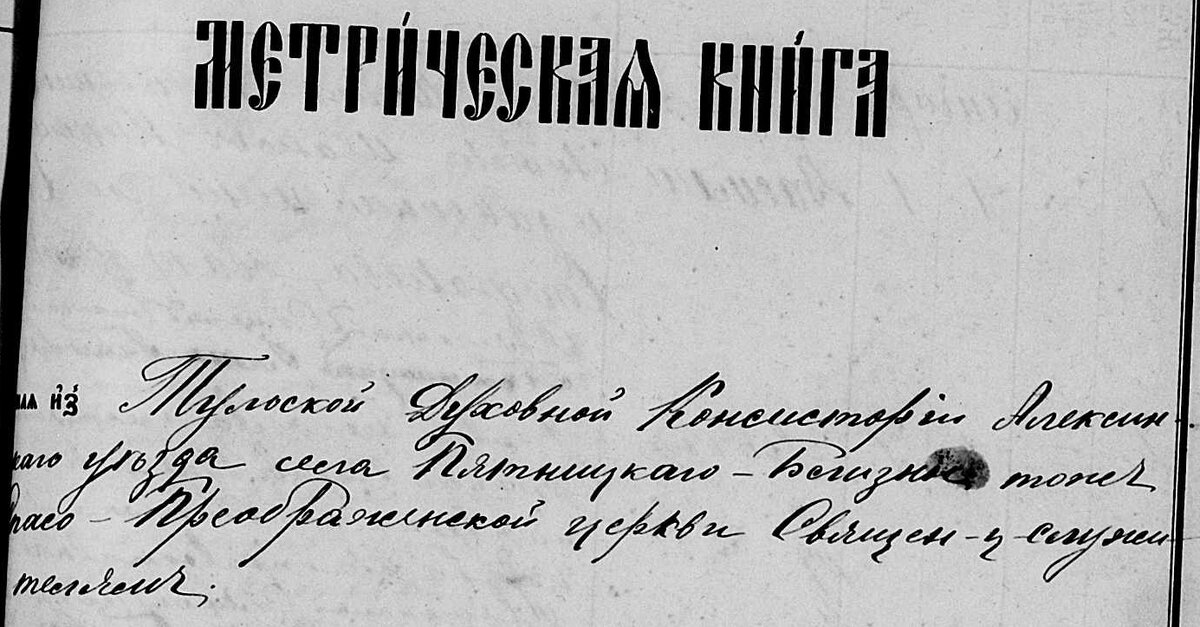 МЕТРИ́ЧЕСКАѦ КНИ́ГА
из Тульской Духовной Консисторіи Алексин-
каго уѣзда села Пятницкаго - тожъ
Преображенской церкви Священ-ц-служи-
телямъ.